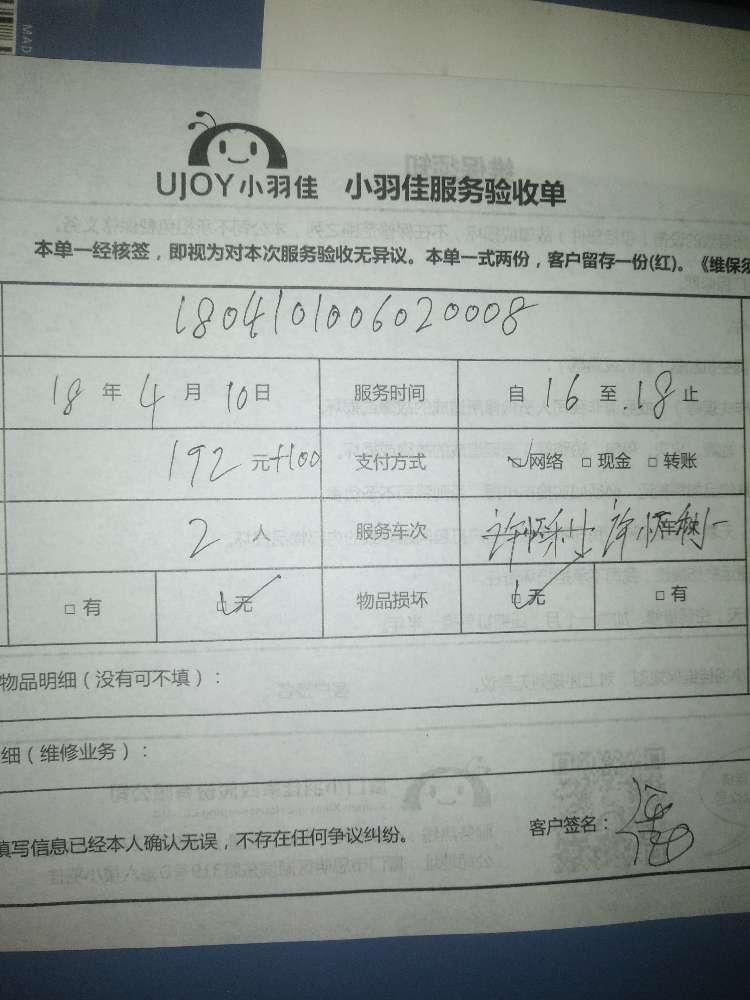 MAD
UJOY小羽佳 小羽佳服务验收单
本单一经核签，即视为对本次服务验收无异议。本单一式两份，客户留存一份(红)。《维保须
1804101006020008
18 年 4 月 10 日 服务时间 自 16 至 18 止
192 元+100 支付方式 网络 □ 现金 □ 转账
2 人 服务车次
□ 有 无 物品损坏 无 □ 有
物品明细（没有可不填）：
细（维修业务）：
填写信息已经本人确认无误，不存在任何争议纠纷。 客户签名：